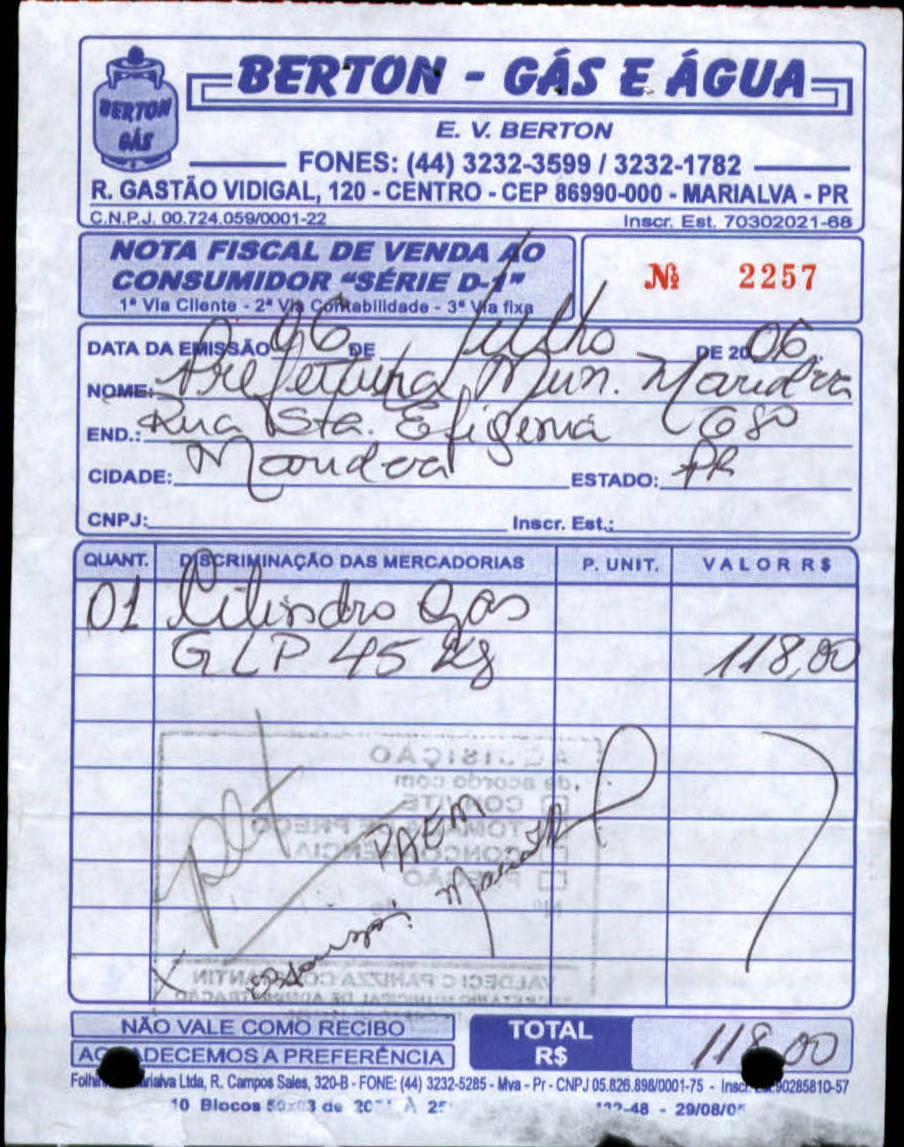 BERTON GÁS
BERTON - GÁS E ÁGUA
E. V. BERTON
FONES: (44) 3232-3599 / 3232-1782
R. GASTÃO VIDIGAL, 120 - CENTRO - CEP 86990-000 - MARIALVA - PR
C.N.P.J. 00.724.059/0001-22 Inscr. Est. 70302021-68
NOTA FISCAL DE VENDA AO
CONSUMIDOR "SÉRIE D-1"
1ª Via Cliente - 2ª Via Contabilidade - 3ª Via fixa
Nº 2257
DATA DA EMISSÃO 06 DE Julho DE 2006
NOME: Prefeitura Mun.
END.: Rua Sta. Efigenia 680
CIDADE: ESTADO: PR
CNPJ: Inscr. Est.:
QUANT. DISCRIMINAÇÃO DAS MERCADORIAS P. UNIT. VALOR R$
01 Cilindro Gas
GLP 45 Kg 118,00
AQUISIÇÃO
de acordo com
CONVITE
TOMADA DE PREÇO
CONCORRÊNCIA
PREGÃO
Nº
VALDECI PANIZZA
SECRETÁRIO MUNICIPAL DE ADMINISTRAÇÃO
NÃO VALE COMO RECIBO
AGRADECEMOS A PREFERÊNCIA
TOTAL R$ 118,00
Ltda, R. Campos Sales, 320-B - FONE: (44) 3232-5285 - Mva - Pr - CNPJ 05.826.898/0001-75 - Inscr. 90285810-57
10 Blocos 50x03 de À - 29/08/05